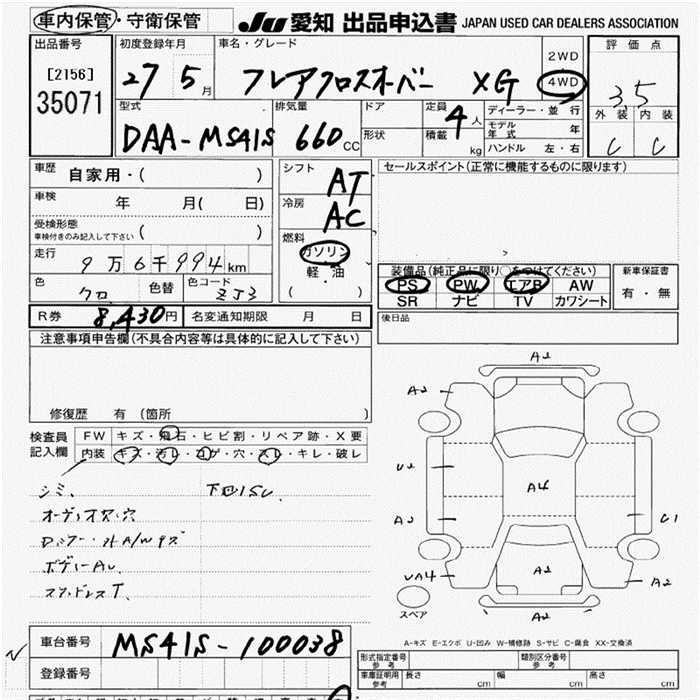 車内保管・守衛保管
JU 愛知 出品申込書 JAPAN USED CAR DEALERS ASSOCIATION
出品番号
[2156]
35071
初度登録年月
27 5月
車名・グレード
フレアクロスオーバー XG
2WD
4WD
評価点
3.5
外装 内装
C C
型式
DAA-MS41S
排気量
660cc
ドア
形状
定員
4人
積載
kg
ディーラー・並行
モデル年式 年
ハンドル 左・右
車歴
自家用・( )
車検
年 月( 日)
受検形態
車検付きのみ記入して下さい ( )
走行
9万6千994km
色
クロ
色替
色コード
ZJ3
シフト
AT
冷房
AC
燃料
ガソリン
軽・油
( )
セールスポイント(正常に機能するものに限ります)
装備品(純正品に限り○をつけてください)
PS PW エアB AW
SR ナビ TV カワシート
新車保証書
有・無
R券 8,430円 名変通知期限 月 日
後日品
注意事項申告欄(不具合内容等は具体的に記入して下さい)
修復歴 有(箇所 )
検査員記入欄
FW キズ・飛石・ヒビ割・リペア跡・X要
内装 キズ・汚レ・コゲ・穴・スレ・キレ・破レ
シミ、
オーディオ欠、穴
ボディーAU
スタッドレスT.
A2
A2
U2
A2
UA4
A4
A2
A2
C1
A2
スペア
A-キズ E-エクボ U-凹み W-補修跡 S-サビ C-腐食 XX-交換済
車台番号
MS41S-100038
登録番号
形式指定番号 参考
類別区分番号 参考
車庫証明用 参考
長さ cm 幅 cm 高さ cm